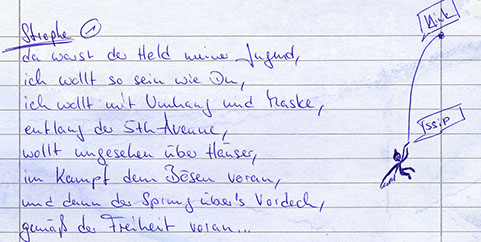 Strophe 1
du warst der Held meiner Jugend,
ich wollt so sein wie Du,
ich wollt mit Umhang und Maske,
entlang der 5th-Avenue,
wollt ungesehen über Häuser,
im Kampf dem Bösen voran,
und dann der Sprung über's Vordach,
gemäß der Freiheit voran...
Klick
Yssip